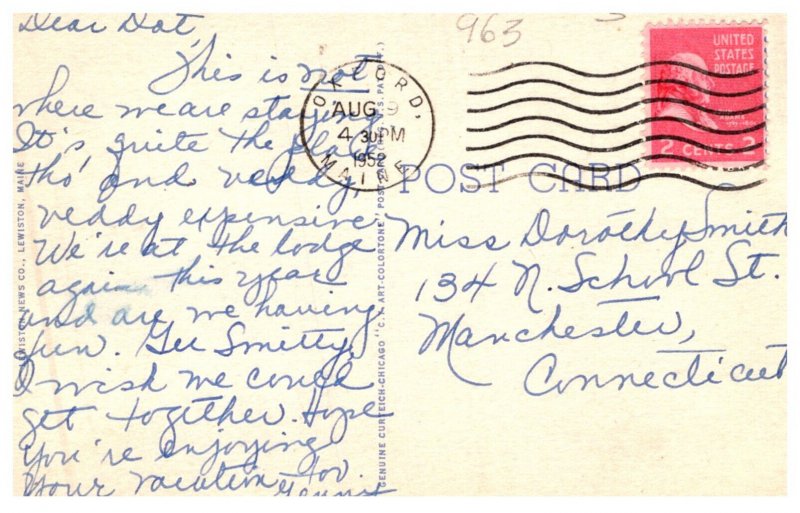 Dear Dot,
This is not
where we are staying.
It's quite the place
tho' and veddy,
veddy expensive.
We're at the lodge
again this year
and are we having
fun. Gee Smitty,
I wish we could
get together. Hope
you're enjoying
your vacation, too
963
OXFORD,
AUG 9
4 30 PM
1952
MAINE
UNITED
STATES
POSTAGE
2 CENTS 2
POST CARD
Miss Dorothy Smith
134 N. School St.
Manchester,
Connecticut
LEWISTON NEWS CO., LEWISTON, MAINE
GENUINE CURTEICH-CHICAGO "C.T. ART-COLORTONE" POST